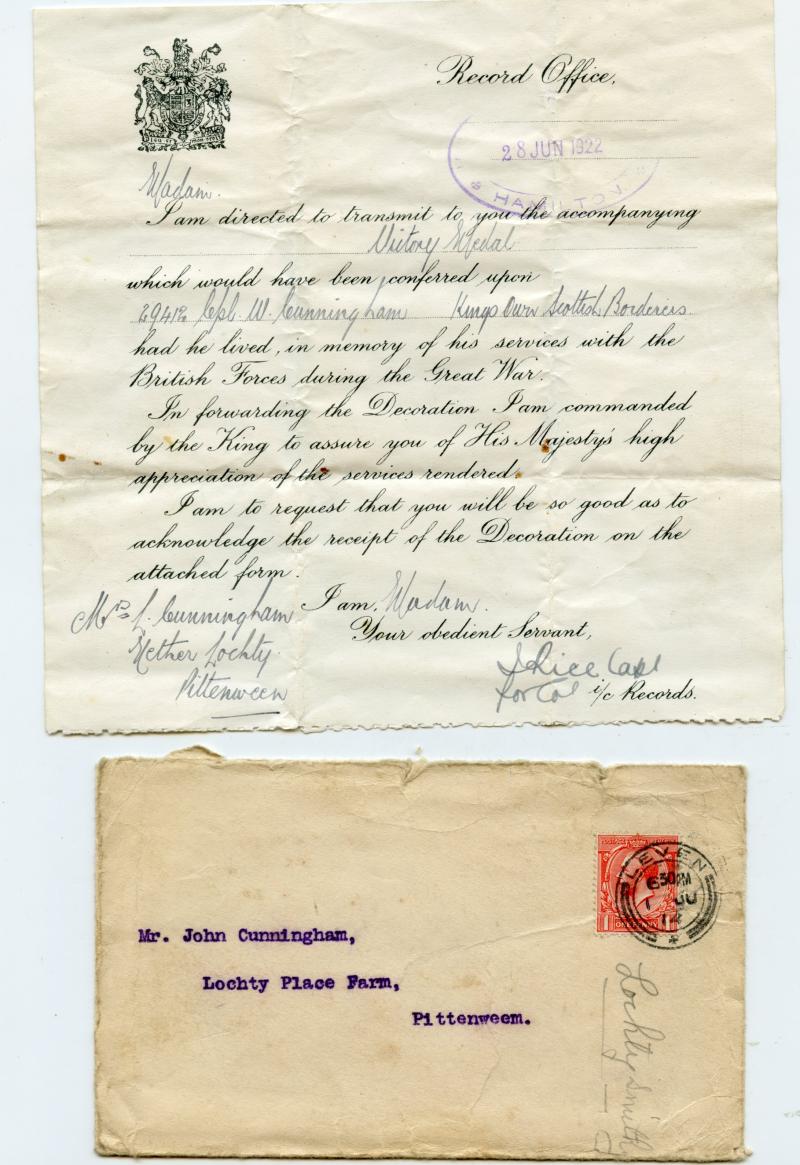 Record Office,
28 JUN 1922
HAMILTON
Madam.
I am directed to transmit to you the accompanying
Victory Medal
which would have been conferred upon
29412 Cpl. W. Cunningham Kings Own Scottish Borderers
had he lived, in memory of his services with the
British Forces during the Great War.
In forwarding the Decoration I am commanded
by the King to assure you of His Majesty's high
appreciation of the services rendered.
I am to request that you will be so good as to
acknowledge the receipt of the Decoration on the
attached form.
I am, Madam.
Your obedient Servant,
Rice Capt
for Col i/c Records.
Mrs L. Cunningham
Nether Lochty
Pittenweem
LEVEN
630PM
1 JU
ONE PENNY
Mr. John Cunningham,
Lochty Place Farm,
Pittenweem.
Lochty Smithy